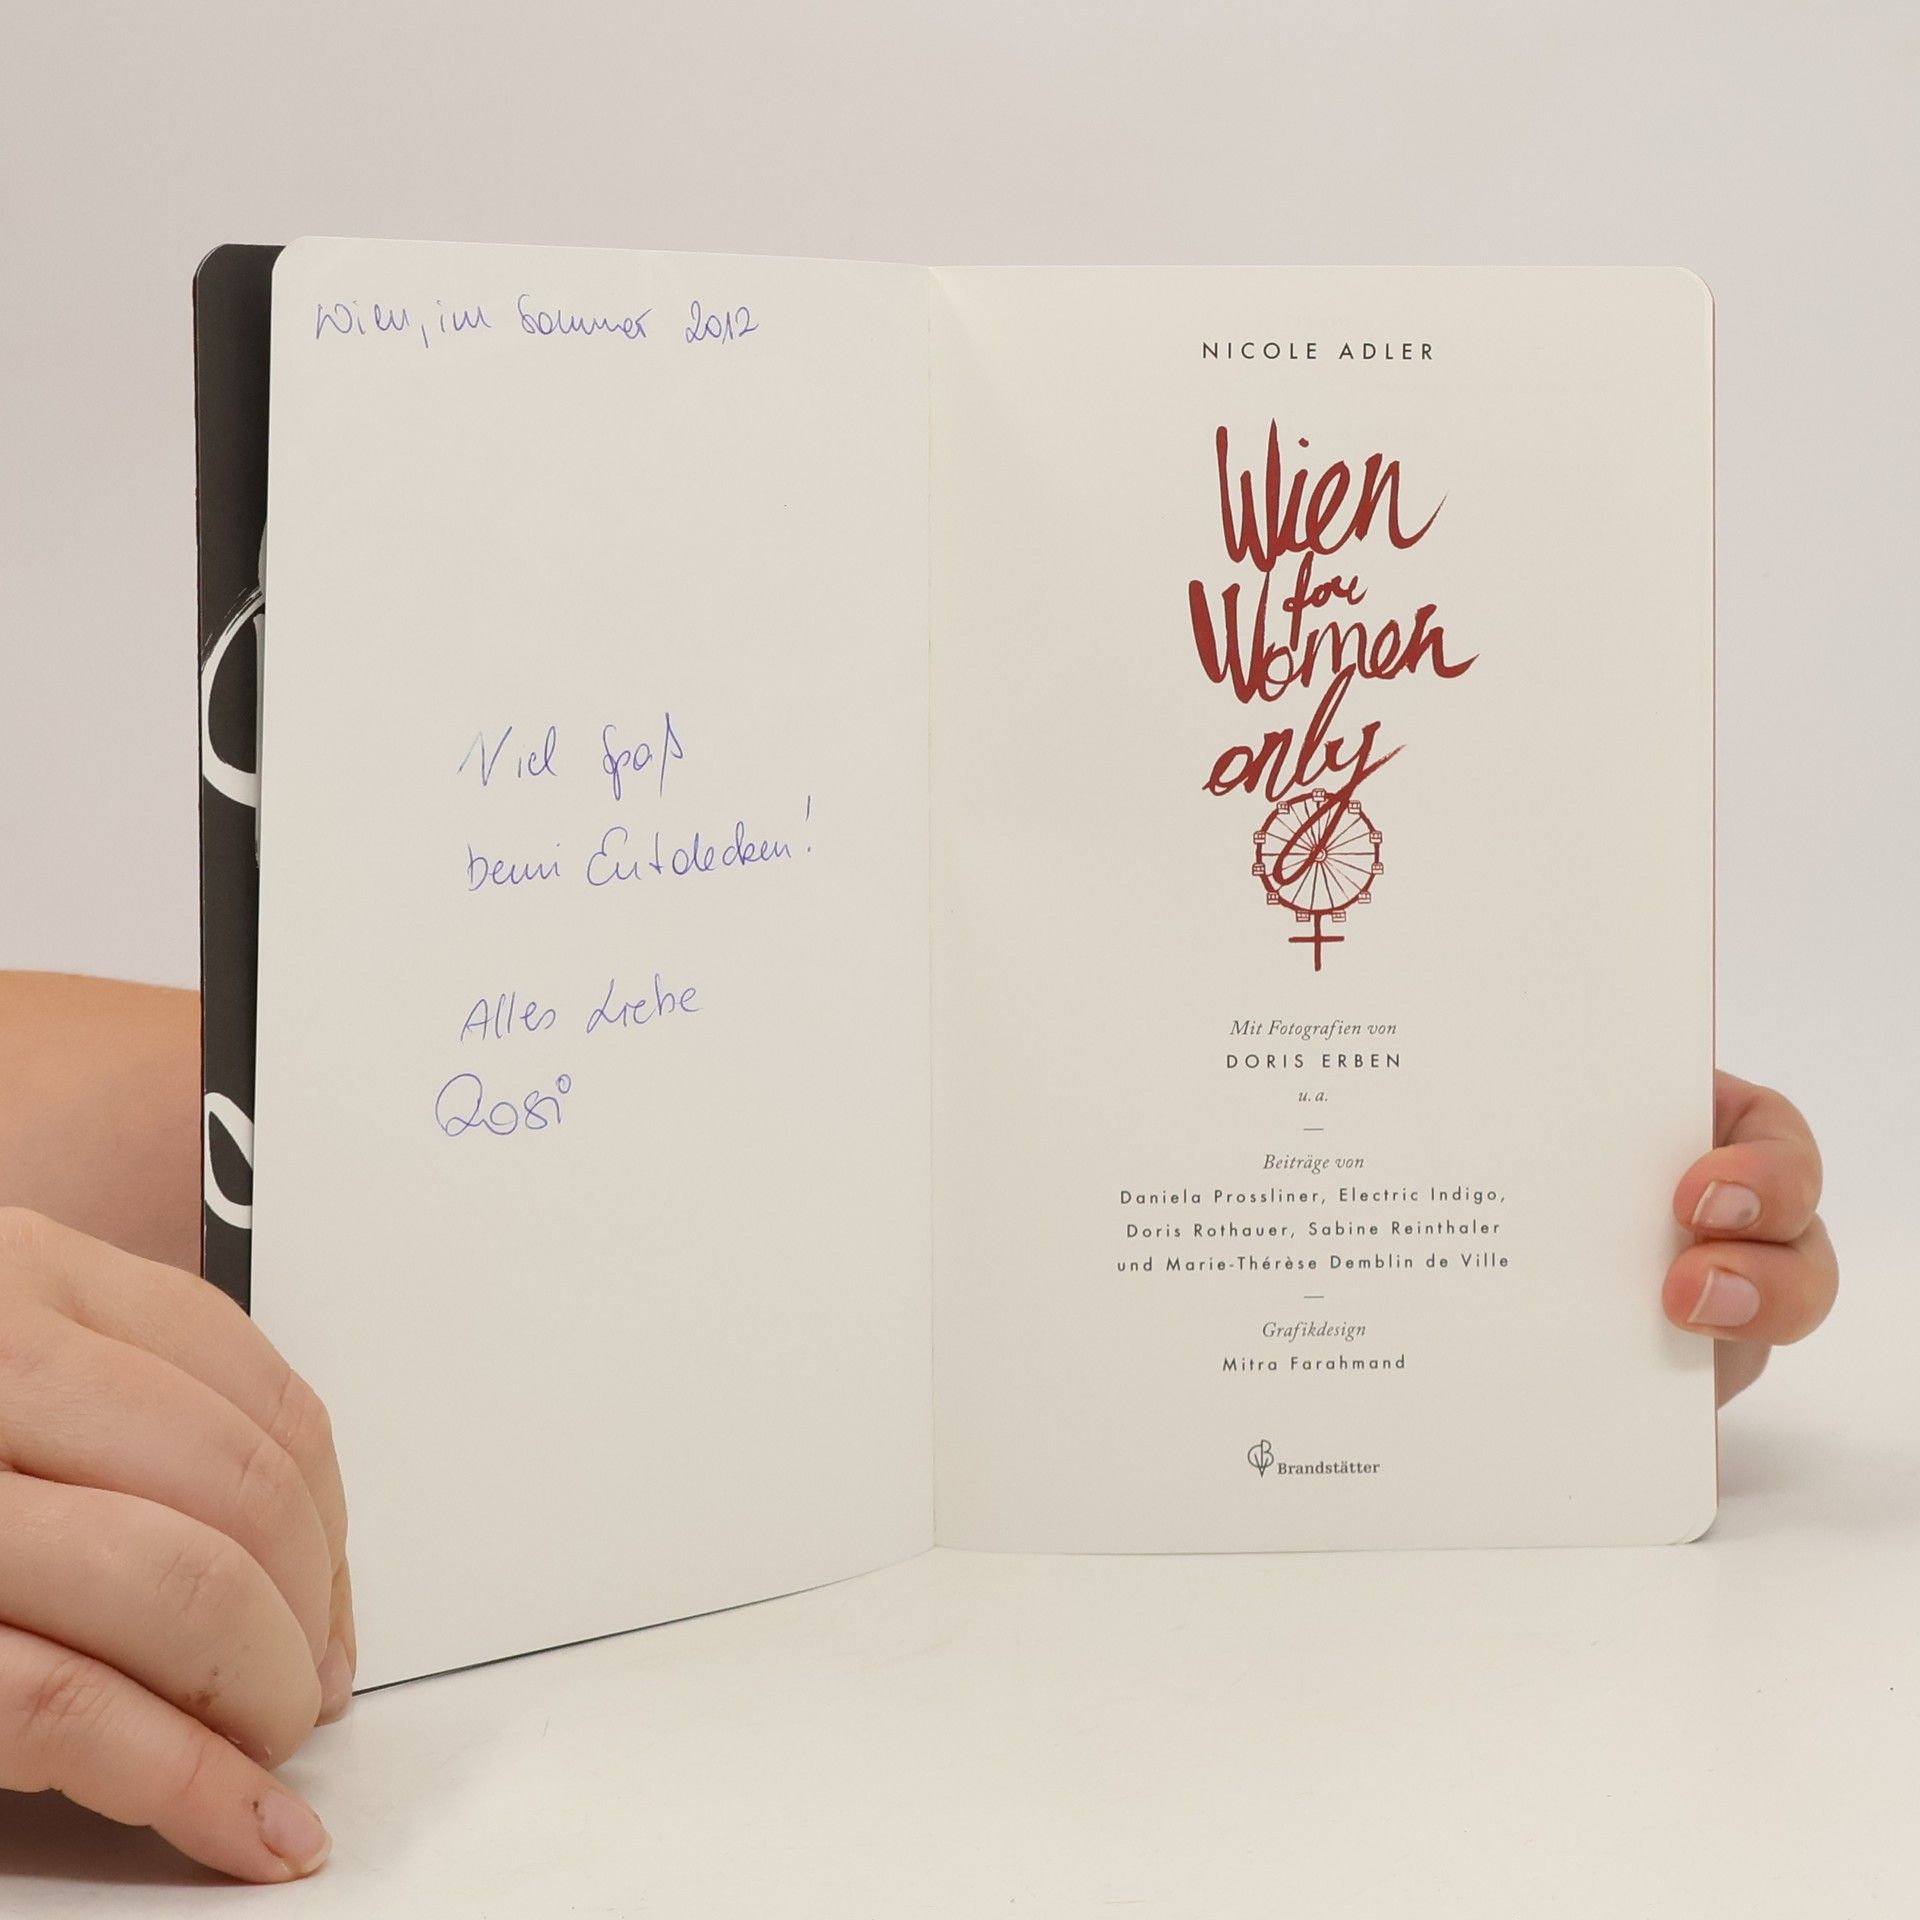 Wien, im Sommer 2012
Viel Spaß
beim Entdecken!
Alles Liebe
Rosi
NICOLE ADLER
Wien
for
Women
only
Mit Fotografien von
DORIS ERBEN
u. a.
—
Beiträge von
Daniela Prossliner, Electric Indigo,
Doris Rothauer, Sabine Reinthaler
und Marie-Thérèse Demblin de Ville
—
Grafikdesign
Mitra Farahmand
Brandstätter